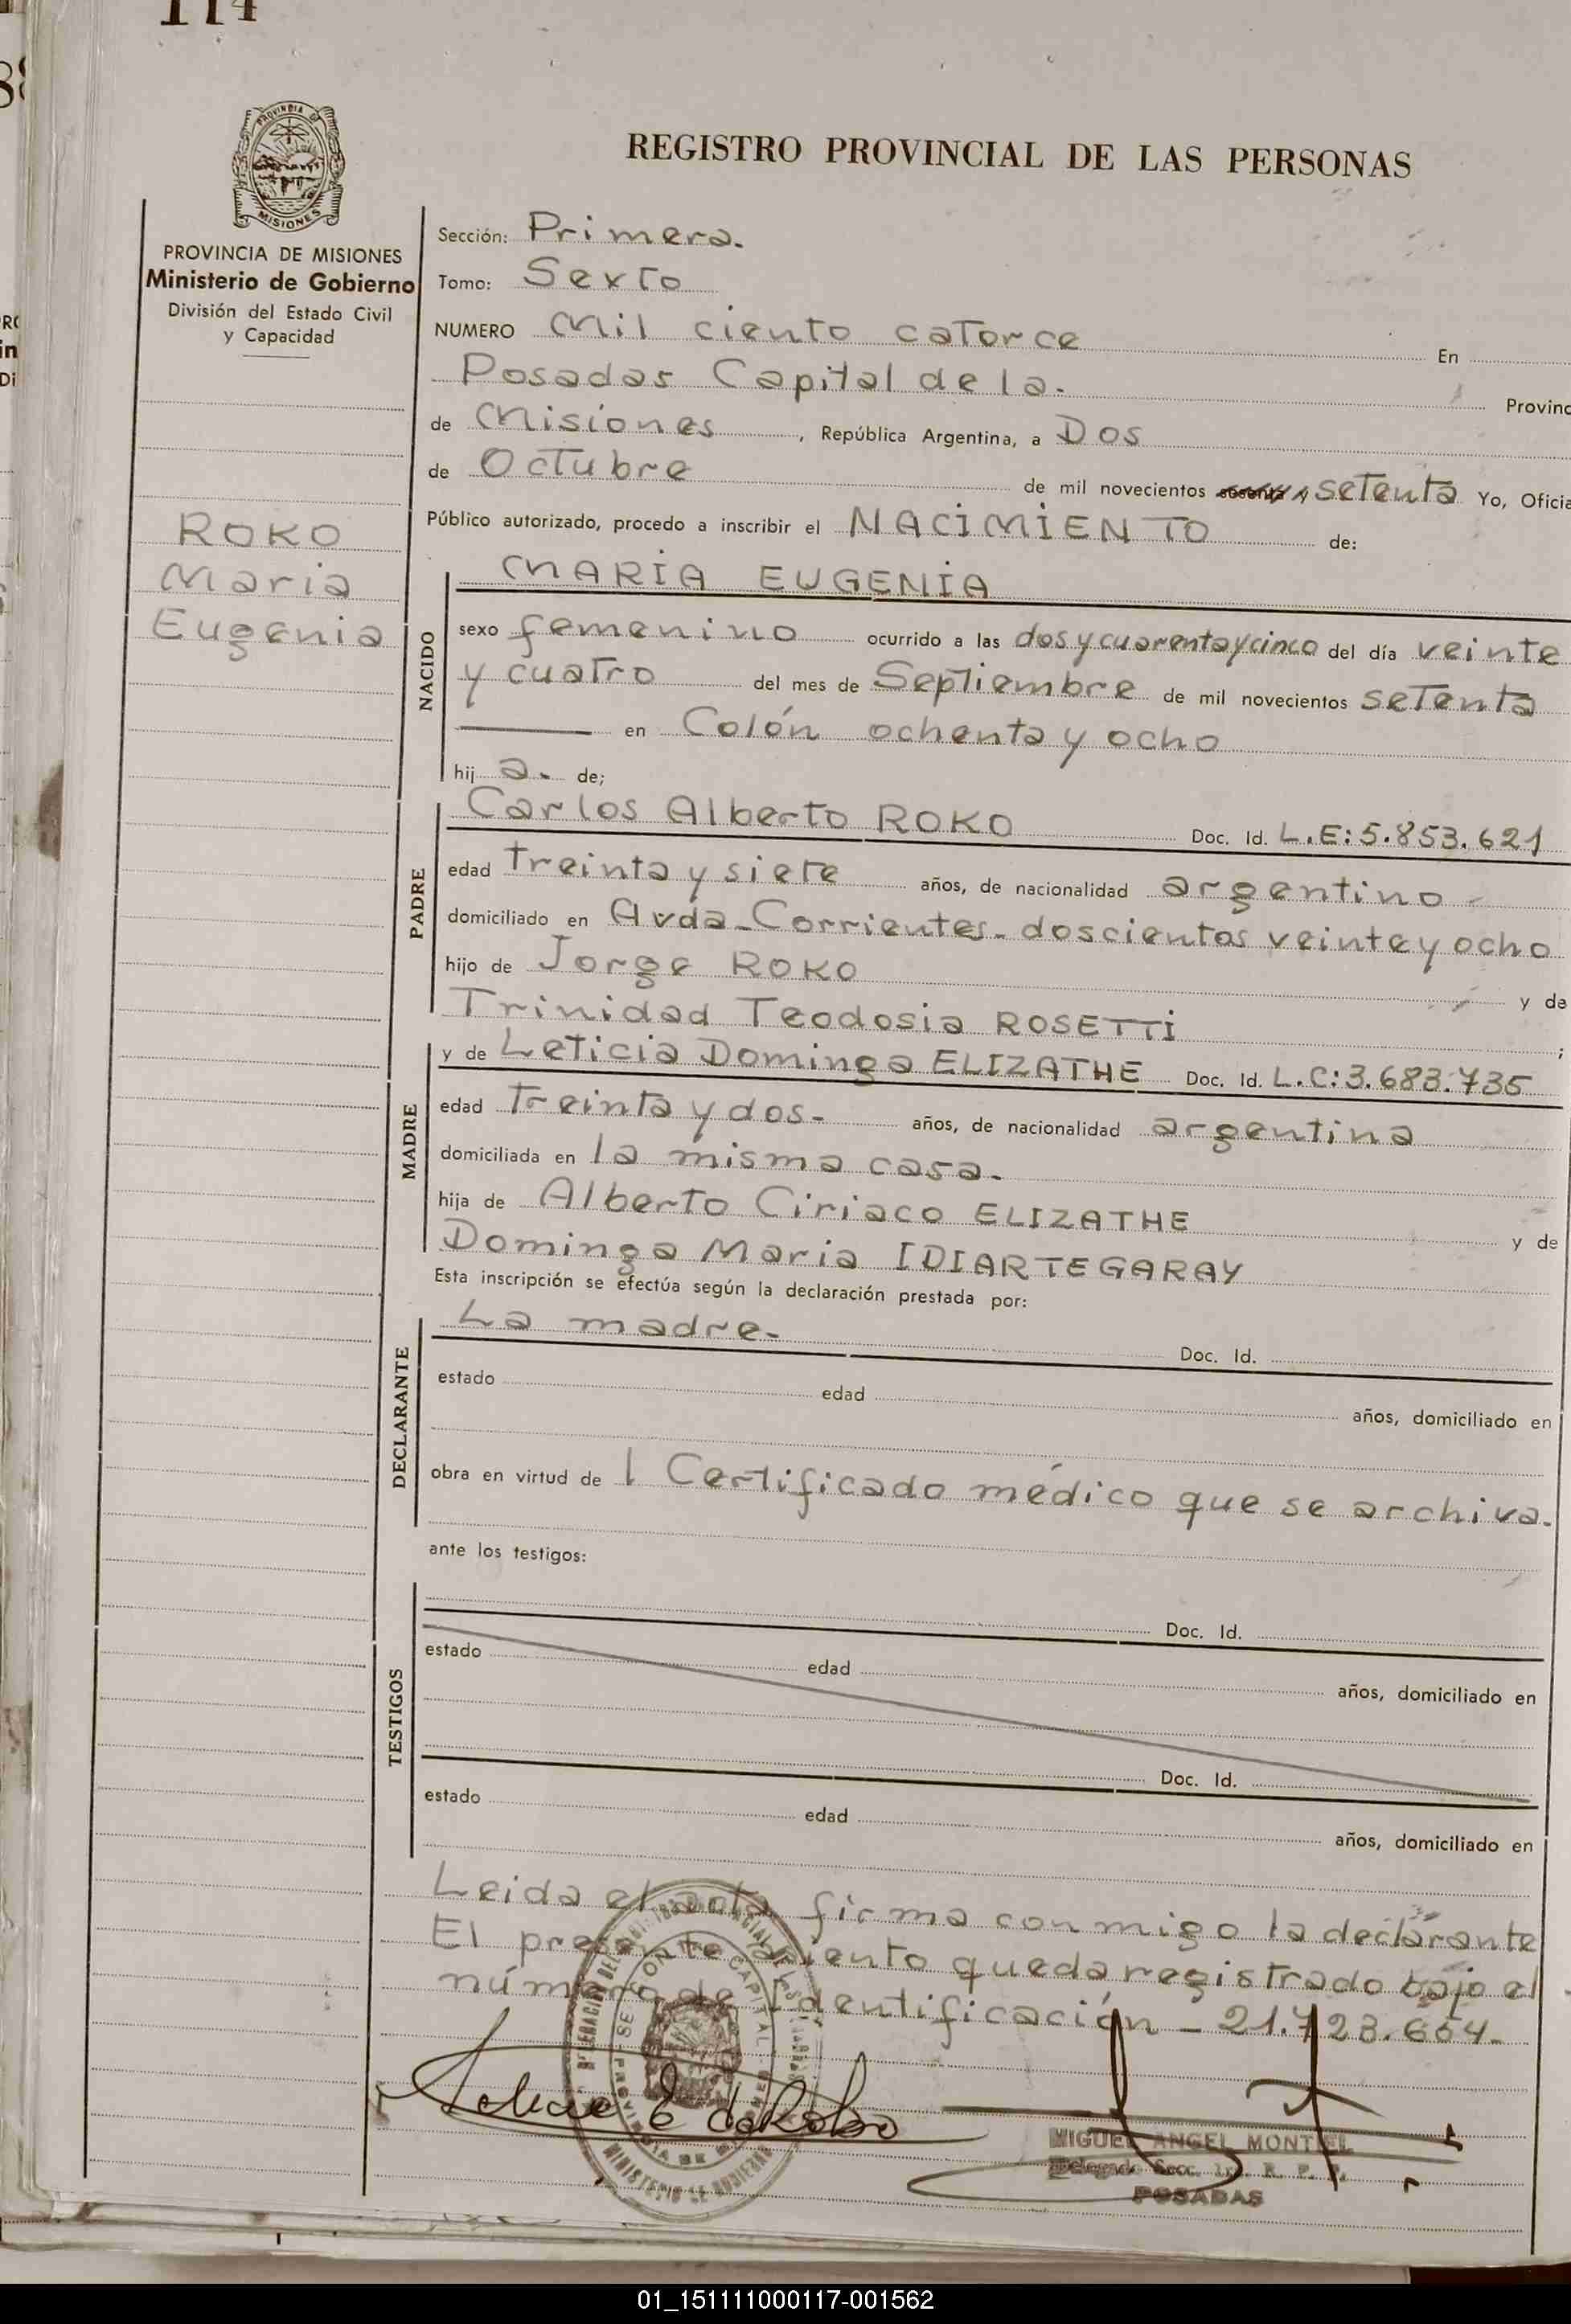 114
REGISTRO PROVINCIAL DE LAS PERSONAS
PROVINCIA DE MISIONES
Ministerio de Gobierno
División del Estado Civil
y Capacidad
ROKO
Maria
Eugenia
Sección: Primera.
Tomo: Sexto
NUMERO Mil ciento catorce En
Posadas Capital de la. Provinc
de Misiones, República Argentina, a Dos
de Octubre de mil novecientos sesenta y setenta Yo, Oficia
Público autorizado, procedo a inscribir el NACIMIENTO de:
NACIDO
MARIA EUGENIA
sexo femenino ocurrido a las dos y cuarenta y cinco del día veinte
y cuatro del mes de Septiembre de mil novecientos setenta
en Colón ochenta y ocho
hij a. de;
PADRE
Carlos Alberto ROKO Doc. Id. L.E: 5.853.621
edad treinta y siete años, de nacionalidad argentino
domiciliado en Avda. Corrientes. doscientos veinte y ocho
hijo de Jorge ROKO y de
Trinidad Teodosia ROSETTI ;
MADRE
y de Leticia Dominga ELIZATHE Doc. Id. L.C: 3.683.735
edad Treinta y dos- años, de nacionalidad argentina
domiciliada en la misma casa.
hija de Alberto Ciriaco ELIZATHE y de
Dominga Maria IDIARTEGARAY
Esta inscripción se efectúa según la declaración prestada por:
DECLARANTE
La madre. Doc. Id.
estado edad años, domiciliado en
obra en virtud de 1 Certificado médico que se archiva.
ante los testigos:
TESTIGOS
Doc. Id.
estado edad años, domiciliado en
Doc. Id.
estado edad años, domiciliado en
Leida el acta firma conmigo la declarante
El presente asiento queda registrado bajo el
número de Identificación - 21.723.664.
MIGUEL ANGEL MONTIEL
Delegado Secc. 1ra. R. P. P.
POSADAS
01_151111000117-001562